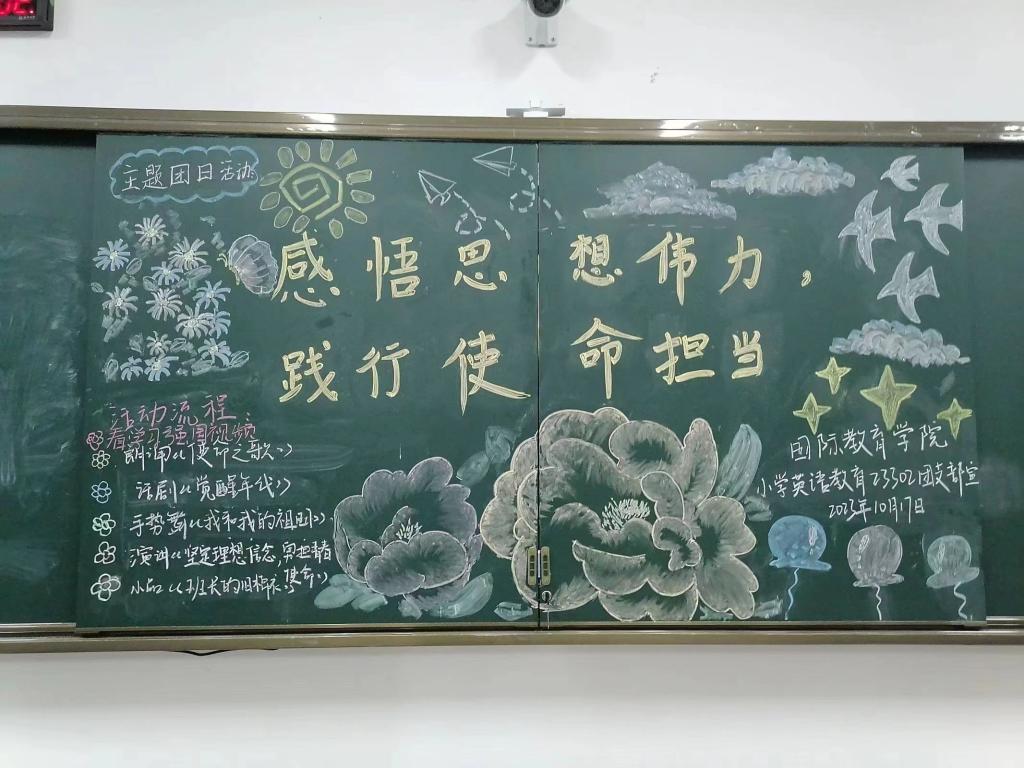 主题团日活动
感悟思想伟力，
践行使命担当
活动流程：
看学习强国视频
朗诵《使命之歌》
话剧《觉醒年代》
手势舞《我和我的祖国》
演讲《坚定理想信念，勇担青
使命》
小品《班长的旧棉衣》
国际教育学院
小学英语教育23302团支部宣
2023年10月17日